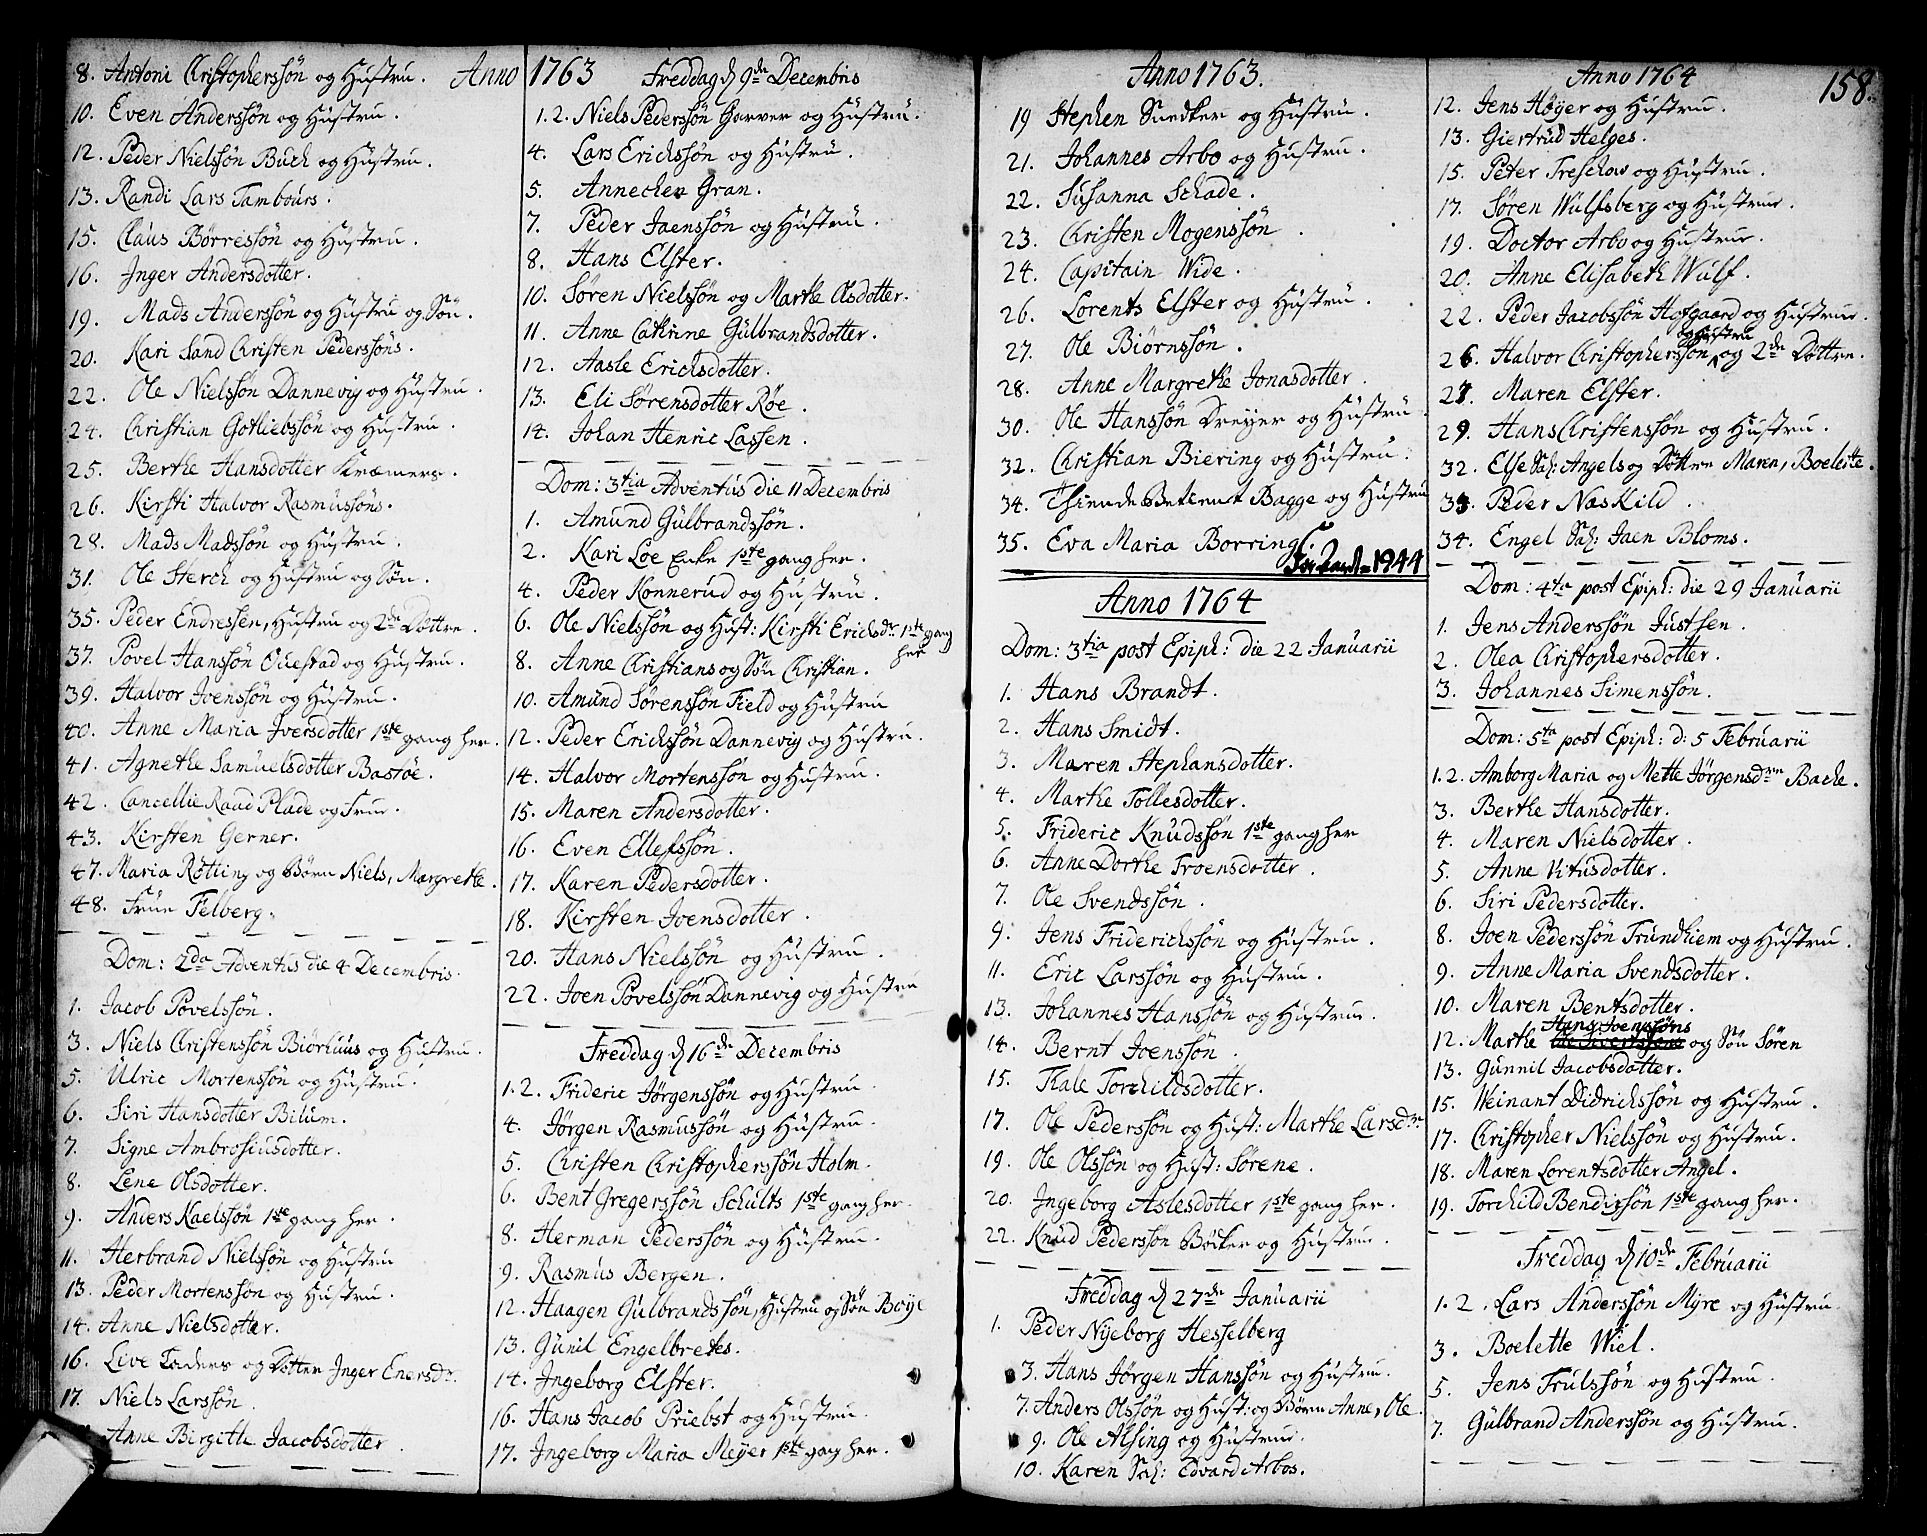 Anno 1763
8. Antoni Christophersøn og Hustru.
10. Even Anderssøn og Hustru.
12. Peder Nielssøn Buch og Hustru.
13. Randi Lars Tambours.
15. Claus Børressøn og Hustru.
16. Inger Andersdotter.
19. Mads Anderssøn og Hustru og Søn.
20. Kari Sand Christen Pederssøns.
22. Ole Nielssøn Dannevig og Hustru.
24. Christian Gotliebssøn og Hustru.
25. Berthe Hansdotter Kræmers.
26. Kirsti Halvor Rasmussøns.
28. Mads Madssøn og Hustru.
31. Ole Sterch og Hustru og Søn.
35. Peder Endressen, Hustru og 2de Døttre.
37. Povel Hanssøn Ouestad og Hustru.
39. Halvor Joenssøn og Hustru.
40. Anne Maria Iversdotter 1ste gang her.
41. Agnethe Samuelsdotter Bastøe.
42. Cancellie Raad Plade og Frue.
43. Kirsten Gerner.
47. Maria Røtting og Børn Niels, Margrethe.
48. Frue Felberg.
Dom: 2da Adventus die 4 Decembris.
1. Jacob Povelssøn.
3. Niels Christenssøn Biørhuus og Hustru.
5. Ulric Mortenssøn og Hustru.
6. Siri Hansdotter Bilum.
7. Signe Ambrosiusdotter.
8. Lene Olsdotter.
9. Anders Kaelssøn 1ste gang her.
11. Herbrand Nielssøn og Hustru
13. Peder Mortenssøn og Hustru.
14. Anne Nielsdotter.
16. Live Taders og Dotter Inger Enersdr.
17. Niels Larssøn.
Anne Birgithe Jacobsdotter.
Freddag d 9de Decembris
1.2. Niels Pederssøn Garver og Hustru.
4. Lars Erichssøn og Hustru.
5. Annechen Gran.
7. Peder Jaenssøn og Hustru.
8. Hans Elster.
10. Søren Nielssøn og Marthe Olsdotter.
11. Anne Cathrine Gulbrandsdotter.
12. Aasle Erichsdotter.
13. Eli Sørensdotter Røe.
14. Johan Henric Lassen.
Dom: 3tia Adventus die 11 Decembris
1. Amund Gulbrandssøn.
2. Kari Loe Enke 1ste gang her.
4. Peder Konnerud og Hustru.
6. Ole Nielssøn og Hust: Kirsti Ericksdr. 1ste gang her
8. Anne Christians og Søn Christian.
10. Amund Sørenssøn Field og Hustru
12. Peder Erichssøn Dannevig og Hustru.
14. Halvor Mortenssøn og Hustru.
15. Maren Andersdotter.
16. Even Ellefssøn.
17. Karen Pedersdotter.
18. Kirsten Joensdotter.
20. Hans Nielssøn og Hustru.
22. Joen Povelssøn Dannevig og Hustru
Freddag d 16de Decembris
1.2. Frideric Jørgenssøn og Hustru.
4. Jørgen Rasmussøn og Hustru.
5. Christen Christopherssøn Holm.
6. Bent Gregerssøn Schults 1ste gang her.
8. Herman Pederssøn og Hustru.
9. Rasmus Bergen.
12. Haagen Gulbrandssøn, Hustru og Søn Boye
13. Gunil Engelbrets.
14. Ingeborg Elster.
16. Hans Jacob Priebst og Hustru.
17. Ingeborg Maria Meyer 1ste gang her.
Anno 1763.
19 Stephen Snedker og Hustru.
21. Johannes Arbo og Hustru.
22. Susanna Schade.
23. Christen Mogenssøn
24. Capitain Wide.
26. Lorents Elster og Hustru.
27. Ole Biørnssøn.
28. Anne Margrethe Jonasdotter.
30. Ole Hanssøn Dreyer og Hustru
32. Christian Biering og Hustru.
34. Bagge og Hustru
35. Eva Maria Borring
1944
Anno 1764
Dom: 3tia post Epiph: die 22 Januarii
1. Hans Brandt.
2. Hans Smidt.
3. Maren Stephansdotter.
4. Marthe Tollesdotter.
5. Frideric Knudssøn 1ste gang her
6. Anne Dorthe Troensdotter.
7. Ole Svendssøn.
9. Jens Friderichssøn og Hustru.
11. Eric Larssøn og Hustru.
13. Johannes Hanssøn og Hustru.
14. Bernt Joenssøn.
15. Thale Torchildsdotter.
17. Ole Pederssøn og Hust: Marthe Larsdr.
19. Ole Olssøn og Hust: Sørene.
20. Ingeborg Aslesdotter 1ste gang her.
22. Knud Pederssøn Bødker og Hustru.
Freddag d 27de Januarii
1. Peder Nyeborg Hesselberg
3. Hans Jørgen Hanssøn og Hustru.
7. Anders Olssøn og Hust: og Børn Anne, Ole.
9. Ole Alsing og Hustrue.
10. Karen Sal: Edvard Arbos.
Anno 1764
158.
12. Jens Høyer og Hustru.
13. Giertrud Helges.
15. Peter Treschow og Hustru.
17. Søren Wulfsberg og Hustrue.
19. Doctor Arbo og Hustrue.
20. Anne Elisabeth Wulf.
22. Peder Jacobssøn Hofgaard og Hustrue.
26. Halvor Christopherssøn og Hustru og 2de Døttre.
27. Maren Elster.
29. Hans Christenssøn og Hustru.
32. Else Sal: Angels og Døttre Maren, Boelette.
33. Peder Næskild
34. Engel Sal: Jaen Bloms.
Dom: 4ta post Epiph: die 29 Januarii
1. Jens Anderssøn Justsen.
2. Olea Christophersdotter.
3. Johannes Simenssøn.
Dom: 5ta post Epiph: d: 5 Februarii
1.2. Amborg Maria og Mette Jørgensdrre Bache.
3. Berthe Hansdotter.
4. Maren Nielsdotter.
5. Anne Vitusdotter.
6. Siri Pedersdotter.
8. Joen Pederssøn Trundhiem og Hustru.
9. Anne Maria Svendsdotter.
10. Maren Bentsdotter.
12. Marthe Hans Joenssøns og Søn Søren
13. Gunnil Jacobsdotter.
15. Weinant Didrichssøn og Hustru.
17. Christopher Nielssøn og Hustru.
18. Maren Lorentsdotter Angel.
19. Torchild Bendixsøn 1ste gang her.
Freddag d 10de Februarii
1.2. Lars Anderssøn Myre og Hustru.
3. Boelette Wiel.
5. Jens Trulssøn og Hustru.
7. Gulbrand Anderssøn og Hustru.